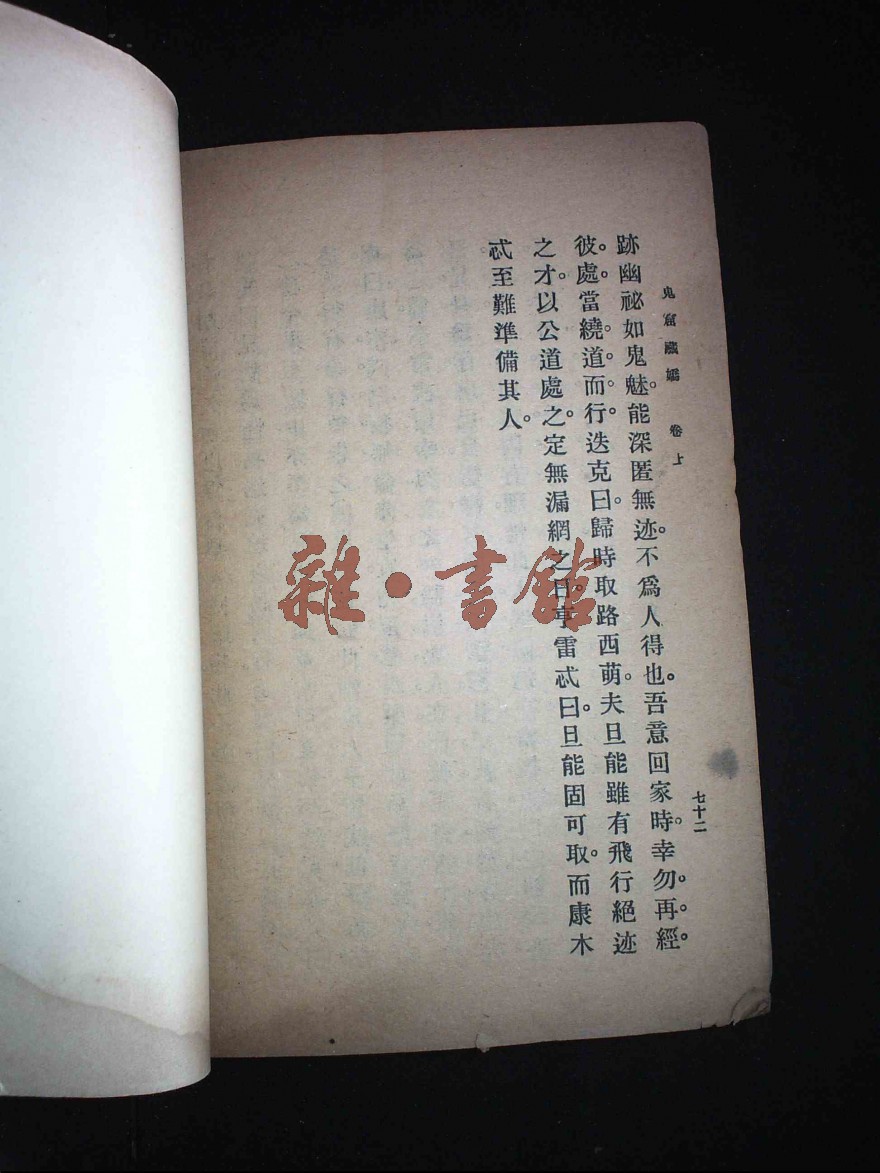 鬼窟藏嬌 卷上 七十二
跡幽祕如鬼魅。能深匿無迹。不爲人得也。吾意回家時。幸勿再經。
彼。處當繞。道而。行。迭克曰。歸時取路西萌。夫旦能雖有飛行絕迹
之才。以公道處。之。定無漏網之日。亨雷忒曰。旦能固可取。而康木
忒至難準備其人。
雜·書館